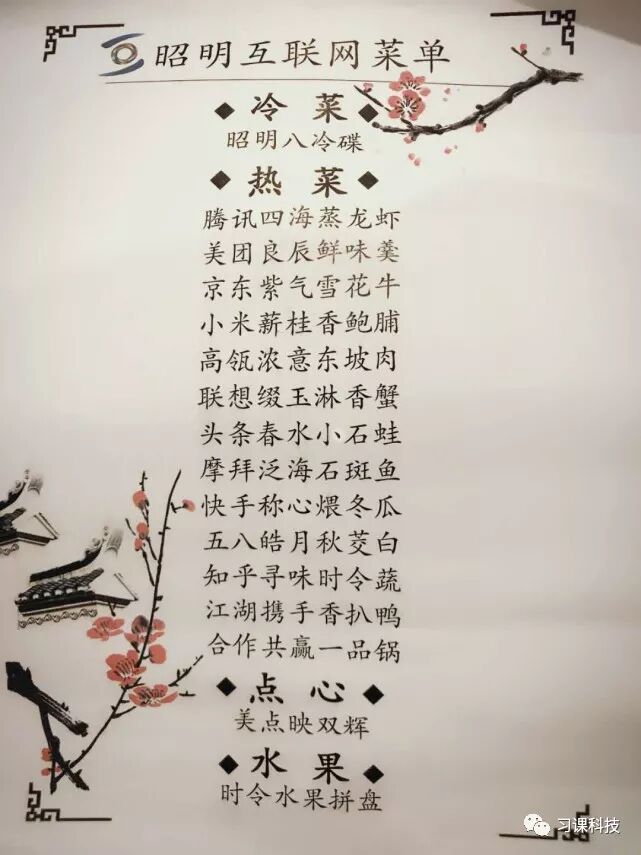 昭明互联网菜单
冷菜
昭明八冷碟
热菜
腾讯四海蒸龙虾
美团良辰鲜味羹
京东紫气雪花牛
小米薪桂香鲍脯
高瓴浓意东坡肉
联想缀玉淋香蟹
头条春水小石蛙
摩拜泛海石斑鱼
快手称心煨冬瓜
五八皓月秋茭白
知乎寻味时令蔬
江湖携手香扒鸭
合作共赢一品锅
点心
美点映双辉
水果
时令水果拼盘
习课科技